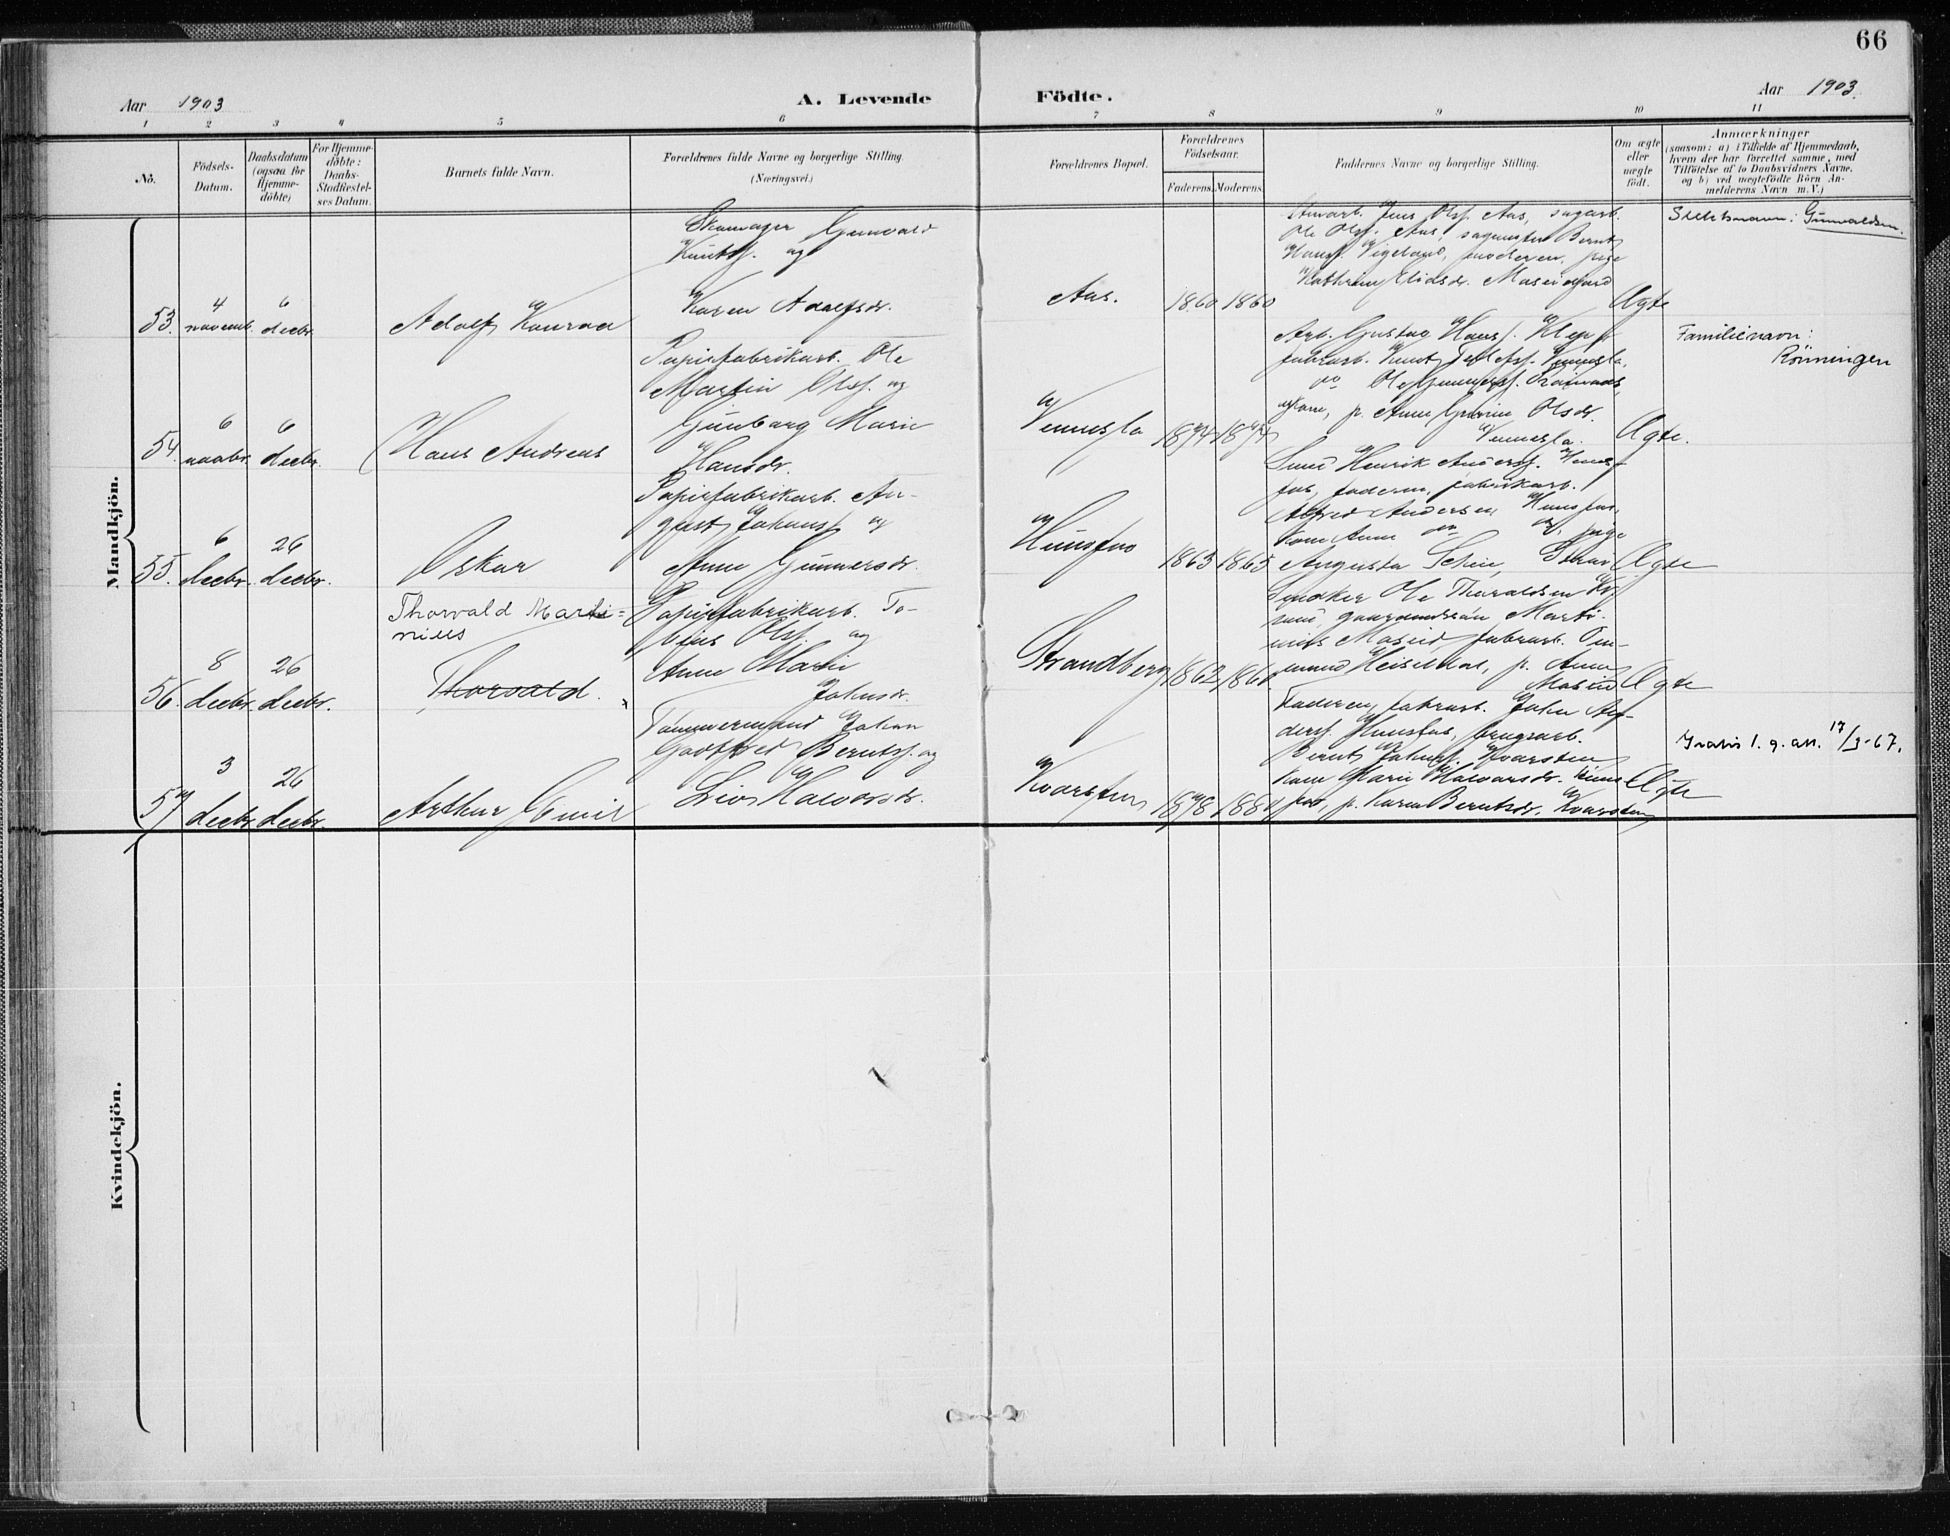 66
Aar 1903
A. Levende Födte.
Aar 1903.
1 2 3 4 5 6 7 8 9 10 11
No.
Födsels-
Datum.
Daabsdatum
(ogsaa for
Hjemme-
döbte)
For Hjemme-
döbte:
Daabs-
Stadfæstel-
ses Datum.
Barnets fulde Navn.
Forældrenes fulde Navne og borgerlige Stilling.
(Næringsvei.)
Forældrenes Bopæl.
Forældrenes
Födselsaar.
Faderens. Moderens.
Faddernes Navne og borgerlige Stilling.
Om ægte
eller
uægte
födt.
Anmærkninger
(saasom: a) i Tilfælde af Hjemmedaab,
hvem der har forrettet samme, med
Tilföielse af to Daabsvidners Navne,
og b) ved uægtefödte Börn An-
melderens Navn m. V.)
Mandkjön.
53.
4
novemb.
6
decbr.
Adolf Konrad
Skomager Gunvald
Knuts. og
Karen Adolfsdr.
Aas.
1860 1860
Jens Ols. Aas, sagarb.
Ole Ols. Aas, sagmester Bernt
Hans. Vigeland, moderen, pige
Ægte
Slektsnavn: Gunvaldsen.
54.
6
novbr.
6
decbr.
Hans Andreas
Papirfabrikarb. Ole
Martin Ols. og
Gunborg Marie
Hansdr.
Vennesla
1874 1874
Arb. Gustav Hans.
fabrarb. Knut Vennesla,
do Ole
kone, p. Anne Olsdr.
Vennesla.
Ægte.
Familienavn:
Rönningen
55.
6
decbr.
26
decbr.
Oskar
Papirfabrikarb. Au-
gust Johans. og
Anne Gunnersdr.
Hunsfos
1863 1865
Smed Henrik Anders. Huns-
fos, faderen, fabrikarb.
Alfred Andersen Hunsfos,
kone Anne do do, pige
Augusta
Ægte
56.
8
decbr.
26
decbr.
Thorvald Marti=
nius
Thorvald.
Papirfabrikarb. To-
bias Ols. og
Anne Marie
Johnsdr.
Strandberg
1862 1860
Snedker Ole Thoraldsen
Marti-
nius Moseid, fabrarb. Om-
mund Heiseldal, p. Anne
Moseid
Ægte
57
3
decbr.
26
decbr.
Arthur Emil
Tömmermand Johan
Godtfred Bernts. og
Liv Halvorsdr.
Kvarsten
1878 1880
Faderen, fabrarb. John An-
ders. Hunsfos, brugsarb.
Bernt Johns. Kvarsten
kone Marie Halvorsdr. Huns-
fos, p. Karen Berntsdr. Kvarsten
Ægte
Gratis l. g. att. 17/3-67.
Kvindekjön.